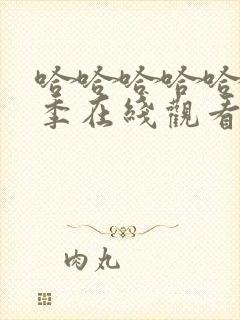 哈哈哈哈哈
季在綫觀看
肉丸